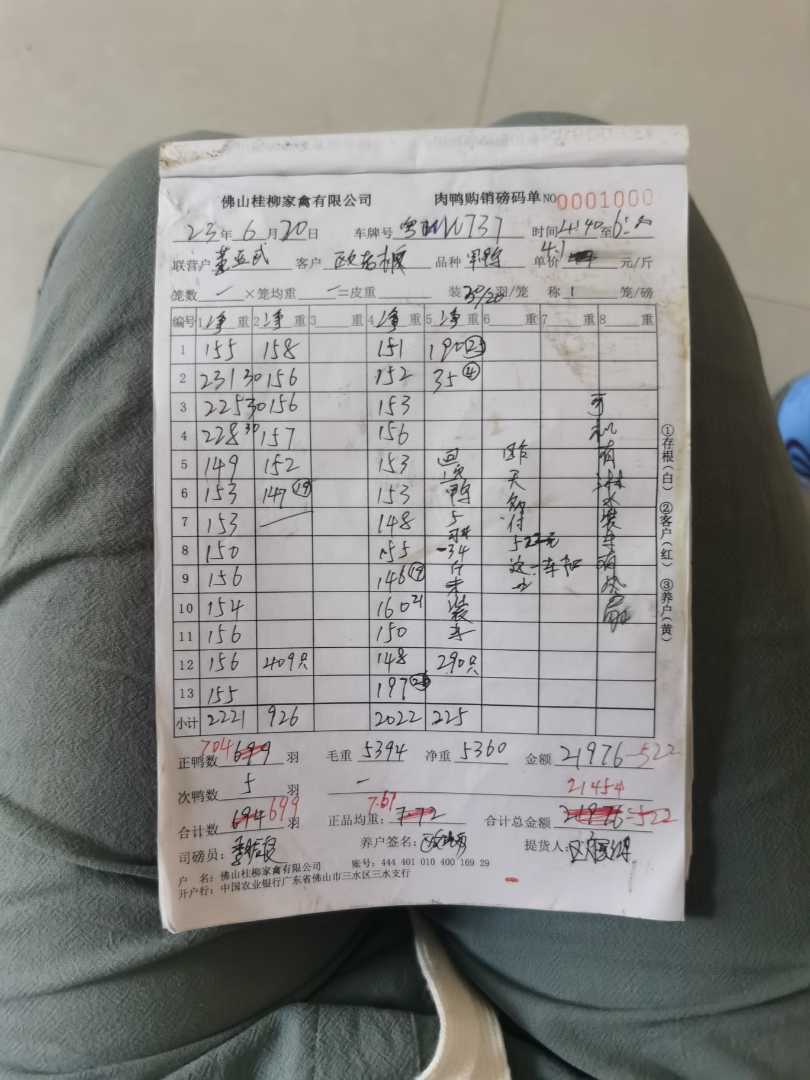 佛山桂柳家禽有限公司 肉鸭购销磅码单 NO 0001000
23年6月20日 车牌号 737 时间4:40至6:
联营户 客户 品种 单价 4.1 元/斤
笼数 一 ×笼均重 一 =皮重 装30/20羽/笼 称 1 笼/磅
编号 1净重 2净重 3 重 4净重 5净重 6 重 7 重 8 重
1 155 158 151 190㉕
2 231 30 156 152 35④
3 225 30 156 153
4 228 30 157 156
5 149 152 153
6 153 147⑲ 153
7 153 148
8 150 155
9 156 146⑲
10 154 160 21
11 156 150
12 156 409只 148 290只
13 155 197
小计 2221 926 2022 225
昨天
付
522元
这一车扣
司机有淋水装车
①存根(白) ②客户(红) ③养户(黄)
正鸭数 704 699 羽 毛重 5394 净重 5360 金额 21976-522
次鸭数 5 羽 一 21454
合计数 694 699 羽 正品均重: 7.67 7.72 合计总金额 21976-522
司磅员: 养户签名: 提货人:
户 名: 佛山桂柳家禽有限公司 账号: 444 401 010 400 169 29
开户行: 中国农业银行广东省佛山市三水区三水支行